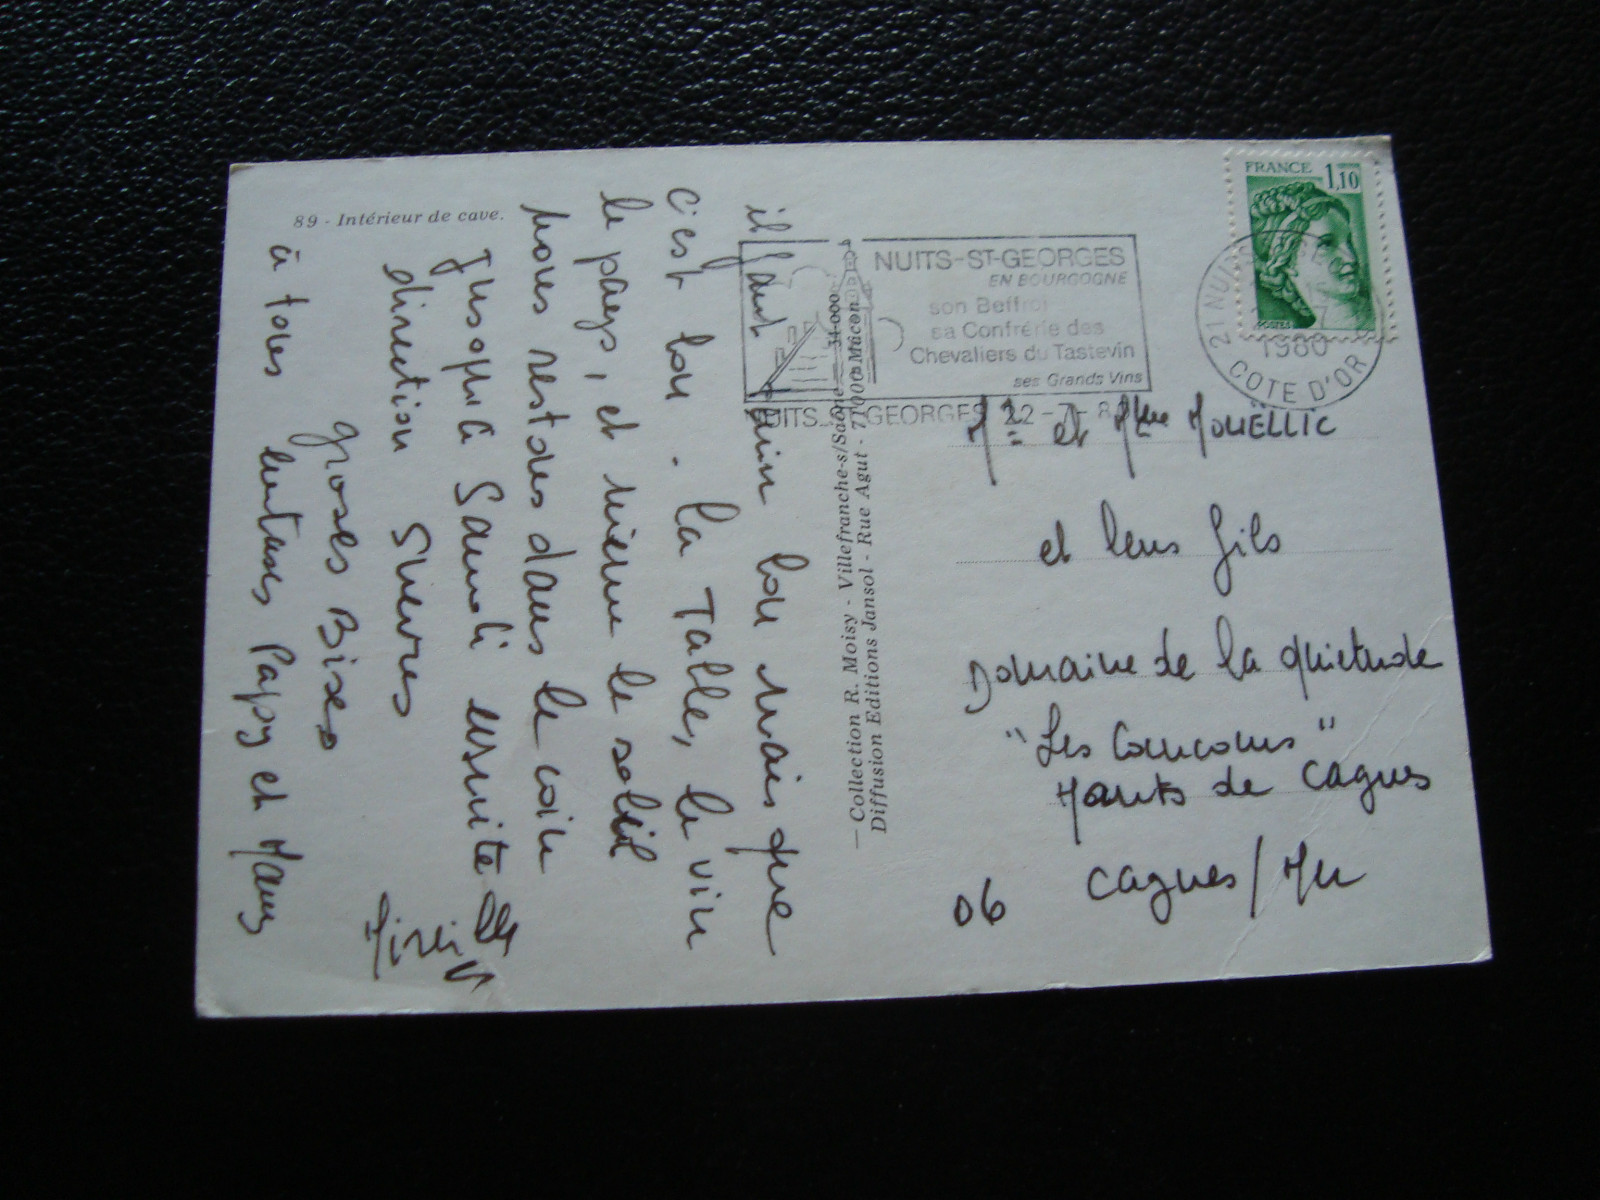 89 - Intérieur de cave.
il faut bien
bon mais que
c'est bon. la Table, le vin
le pays, et même le soleil
nous restons dans le coin
Jusqu'à Samedi ensuite
direction Suevres
groses Bises
à tous
Papy et Mamy
— Collection R. Moisy - Villefranche-s/Saône
Diffusion Editions Jansol - Rue Agut - 71000 Mâcon
FRANCE 1,10
POSTES
NUITS-ST-GEORGES
EN BOURGOGNE
son Beffroi
sa Confrérie des
Chevaliers du Tastevin
ses Grands Vins
NUITS-ST-GEORGES 22-7-8
21 NUITS
1980
COTE D'OR
Mr et Mme MOUËLLIC
et leurs fils
Domaine de la quietude
"Les Coucous"
Hauts de Cagnes
06 Cagnes/Mer